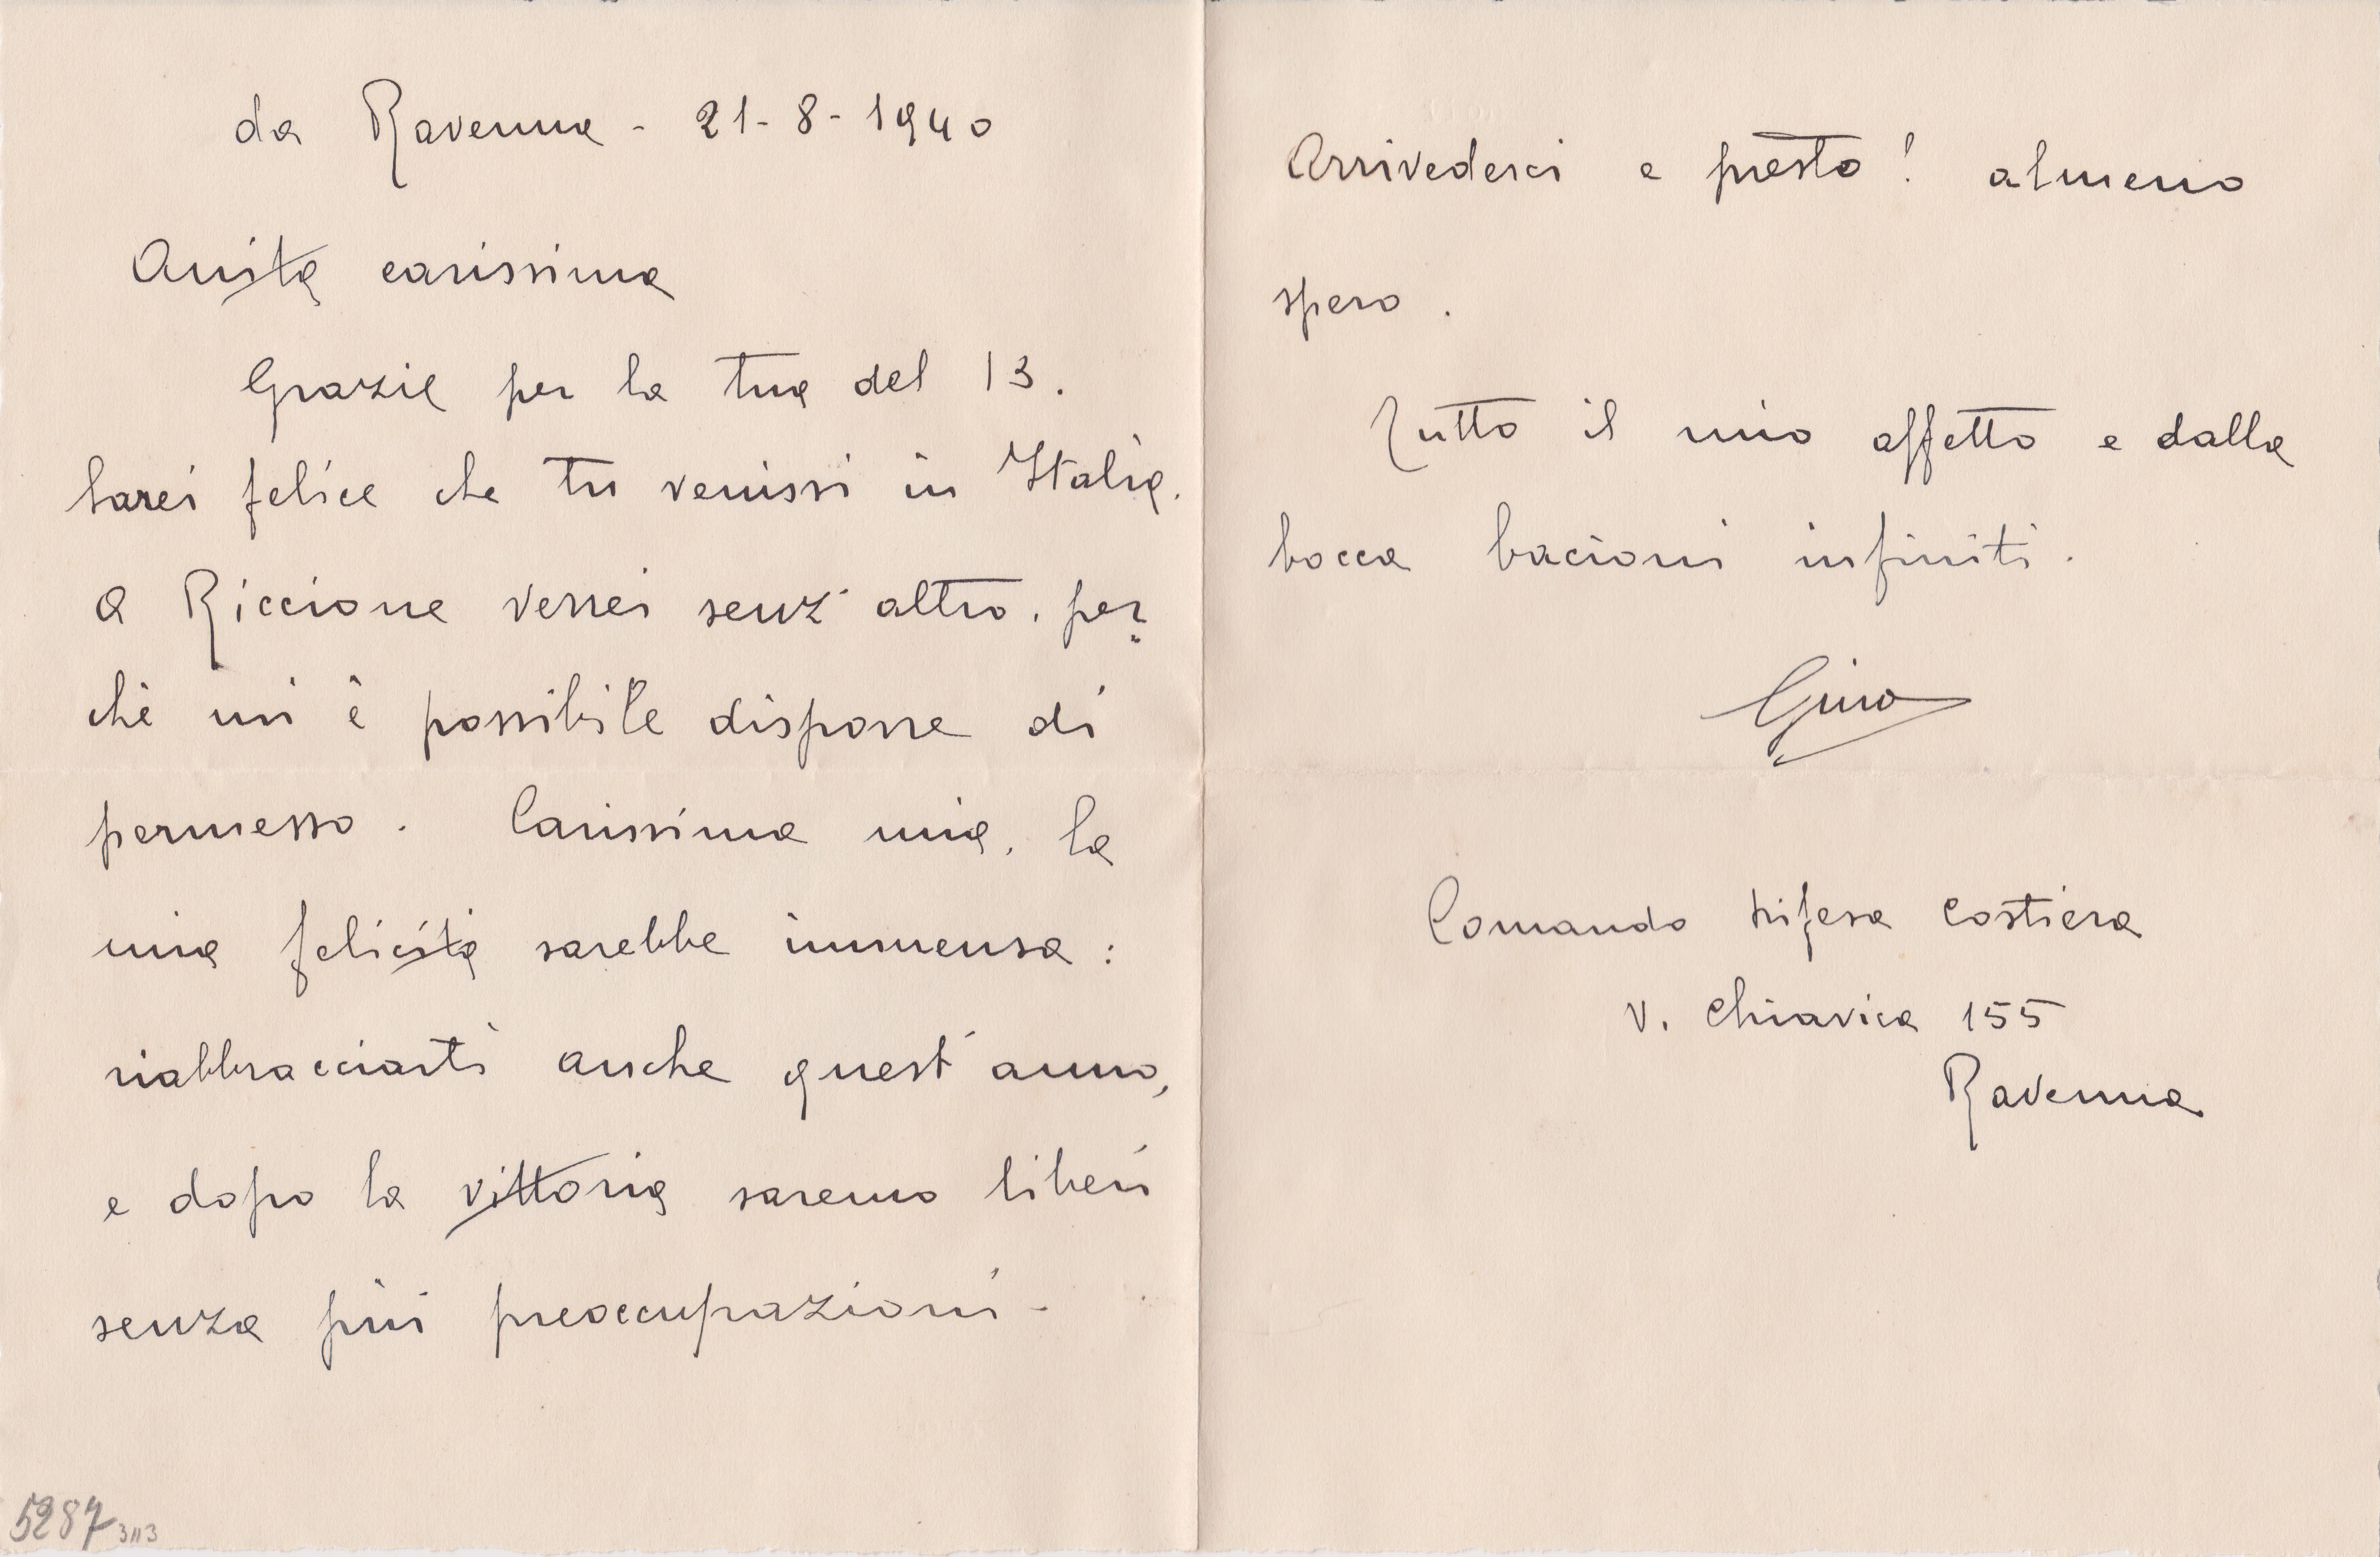 da Ravenna - 21-8-1940
Anita carissima
Grazie per la tua del 13.
Sarei felice che tu venissi in Italia.
A Riccione verrei senz'altro, per=
chè mi è possibile disporre di
permesso. Carissima mia, la
mia felicità sarebbe immensa:
riabbracciarti anche quest'anno,
e dopo la vittoria saremo liberi
senza più preoccupazioni -
5287
Arrivederci e presto! almeno
spero.
Tutto il mio affetto e dalla
bocca bacioni infiniti.
Gino
Comando Difesa Costiera
V. Chiavica 155
Ravenna